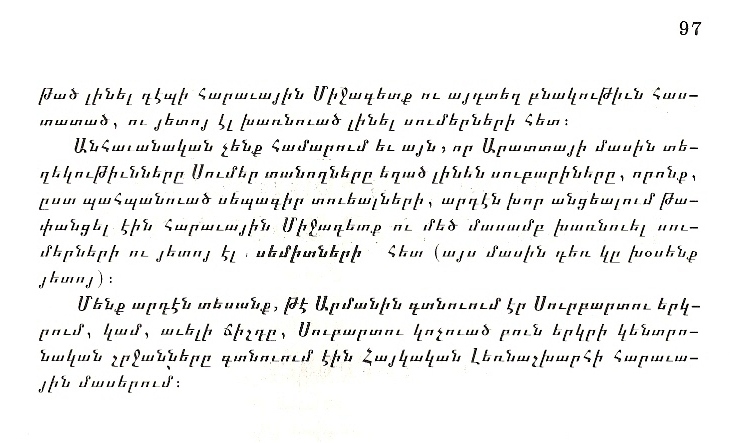 97
թած լինել դէպի հարաւային Միջագետք ու այդտեղ բնակութիւն հաս-
տատած, ու յետոյ էլ խառնուած լինել սումերների հետ:
Անհաւանական չենք համարում եւ այն, որ Արատտայի մասին տե-
ղեկութիւնները Սումեր տանողները եղած լինեն սուբարիները, որոնք,
ըստ պահպանուած սեպագիր տուեալների, արդէն խոր անցեալում թա-
փանցել էին հարաւային Միջագետք ու մեծ մասամբ խառնուել սու-
մերների ու յետոյ էլ սեմիտների հետ (այս մասին դեռ կը խօսենք
յետոյ):
Մենք արդէն տեսանք, թէ Արմանին գտնուում էր Սուրբարտու երկ-
րում, կամ, աւելի ճիշդը, Սուբարտու կոչուած բուն երկրի կենտրո-
նական շրջանները գտնուում էին Հայկական Լեռնաշխարհի հարաւա-
յին մասերում: